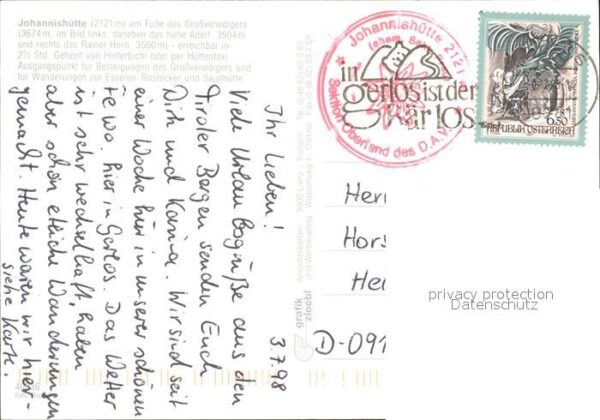 Johannishütte (2121 m) am Fuße des Großvenedigers
(3674 m, im Bild links; daneben das hohe Aderl, 3504 m
und rechts das Rainer Horn, 3560 m) - erreichbar in
2½ Std. Gehzeit von Hinterbichl oder per Hüttentaxi.
Ausgangspunkt für Besteigungen des Großvenedigers und
für Wanderungen zur Essener-Rostocker und Sajathütte
3.7.98
Ihr Lieben!
Viele Urlaubsgrüße aus den
Tiroler Bergen senden Euch
Dirk und Karina. Wir sind seit
einer Woche hier in unserer schönen
hier in Gerlos. Das Wetter
ist sehr wechselhaft, haben
aber schon etliche Wanderungen
gemacht. Heute waren wir hier -
siehe Karte.
grafik
zloebl
Ansichtskarten- und Werbeverlag
9900 Lienz
Johannishütte 2121 m
Sektion Oberland des D.A.V.
in
gerlos ist der
gar los
6.50
REPUBLIK ÖSTERREICH
Herr
Hors
He
D-091
privacy protection
Datenschutz